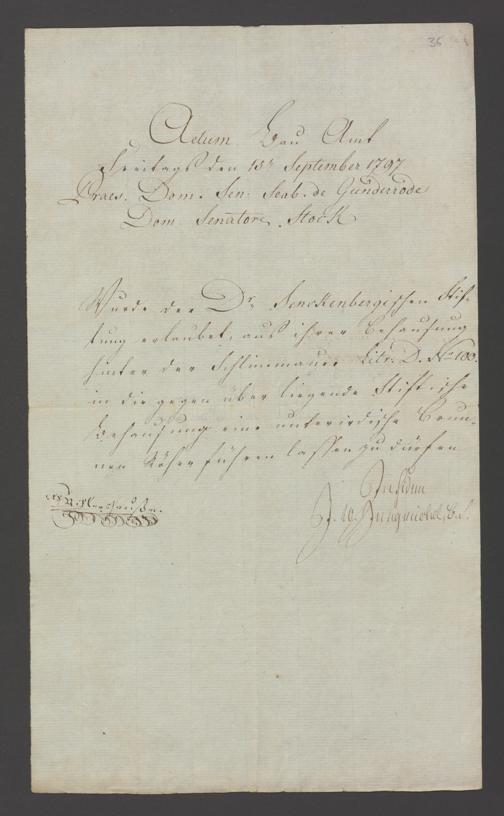 36
Actum Bau Amt
Freitags den 15n September 1797
Praes. Dom. Sen. Scab. de Günderrode
Dom. Senatore Stock
Wurde der Dr. Senckenbergischen Stif-
tung erlaubet, aus ihrer Behausung
hinter der Schlimmauer Litr. D. No 100.
in die gegen über liegende Stiftische
Behausung eine unterirdische Brun-
nen Röhre führen lassen zu dürfen
In fidem
J. W.